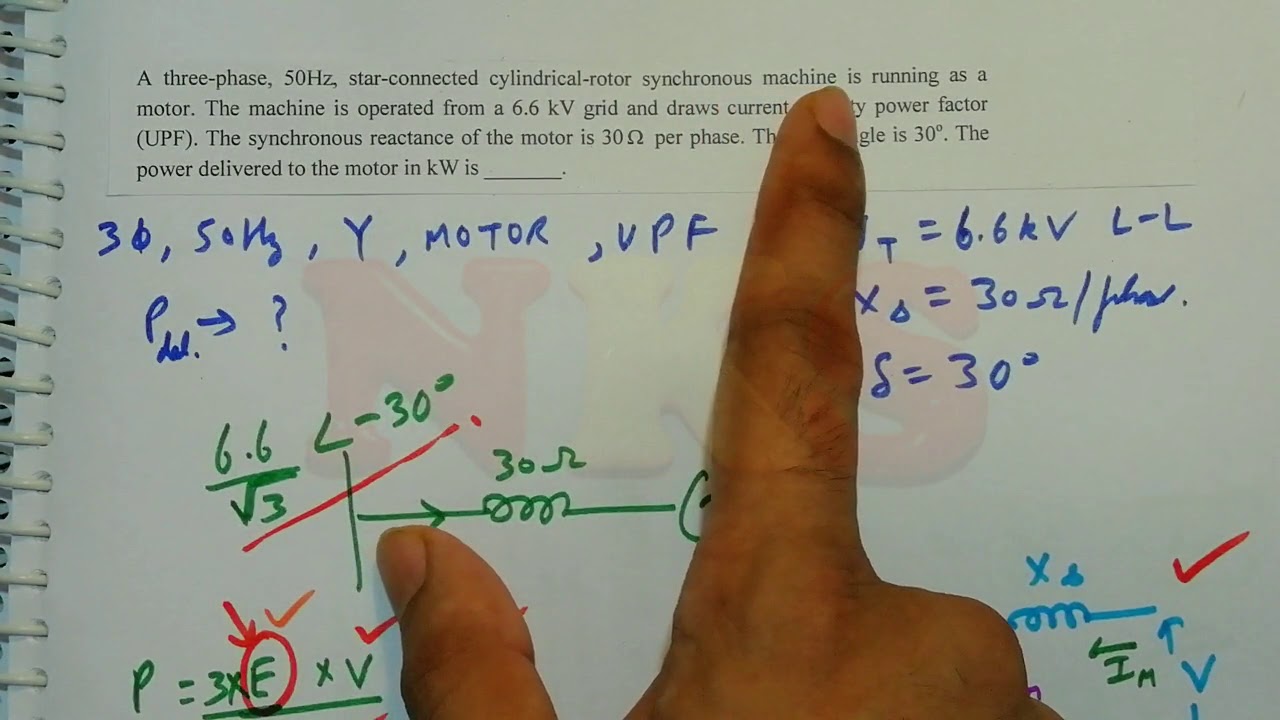 A three-phase, 50Hz, star-connected cylindrical-rotor synchronous machine is running as a
motor. The machine is operated from a 6.6 kV grid and draws current power factor
(UPF). The synchronous reactance of the motor is 30 Ω per phase. is 30°. The
power delivered to the motor in kW is ______.
3ϕ, 50Hz, Y, MOTOR, UPF = 6.6kV L-L
P del. → ? X_s = 30Ω/phase.
δ = 30°
6.6/√3 ∠-30°
30Ω
X_s
I_M
V
P = 3×E × V
NKS